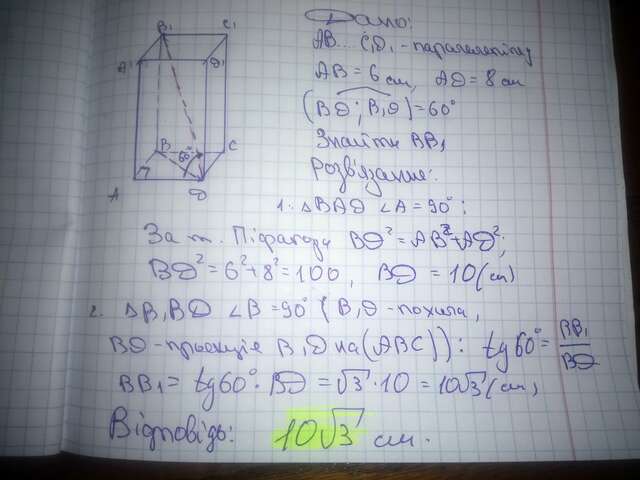 B₁ C₁
A₁ D₁
B 60° C
A D
Дано:
AB...C₁D₁ - паралелепіпед
AB = 6 см, AD = 8 см
(BD; B₁D) = 60°
Знайти BB₁
Розв'язання:
1. △BAD ∠A = 90°:
За т. Піфагора BD² = AB² + AD²;
BD² = 6² + 8² = 100, BD = 10 (см)
2. △B₁BD ∠B = 90° (B₁D - похила,
BD - проекція B₁D на (ABC)): tg60° = BB₁/BD
BB₁ = tg60° · BD = √3 · 10 = 10√3 (см)
Відповідь: 10√3 см.